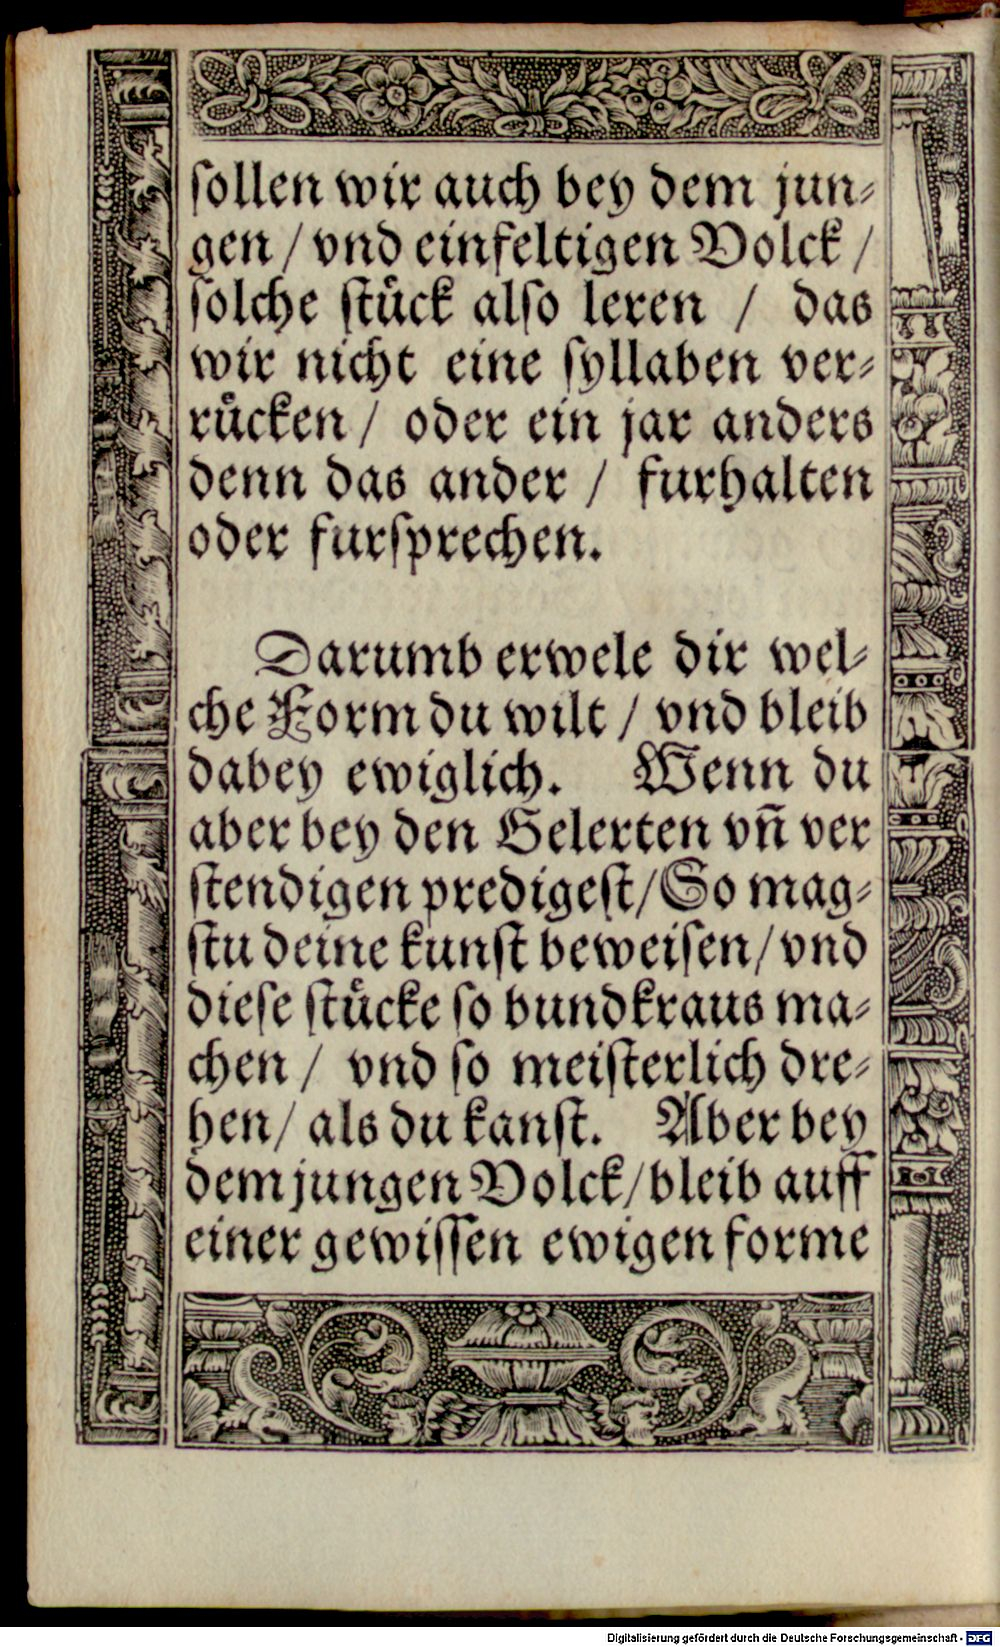 sollen wir auch bey dem jun⸗
gen / vnd einfeltigen Volck /
solche stuͤck also leren / das
wir nicht eine syllaben ver⸗
ruͤcken / oder ein jar anders
denn das ander / furhalten
oder fursprechen.
Darumb erwele dir wel⸗
che Form du wilt / vnd bleib
dabey ewiglich. Wenn du
aber bey den Gelerten vn̄ ver
stendigen predigest / So mag⸗
stu deine kunst beweisen / vnd
diese stuͤcke so bundkraus ma⸗
chen / vnd so meisterlich dre⸗
hen / als du kanst. Aber bey
dem jungen Volck / bleib auff
einer gewissen ewigen forme
Digitalisierung gefördert durch die Deutsche Forschungsgemeinschaft - DFG